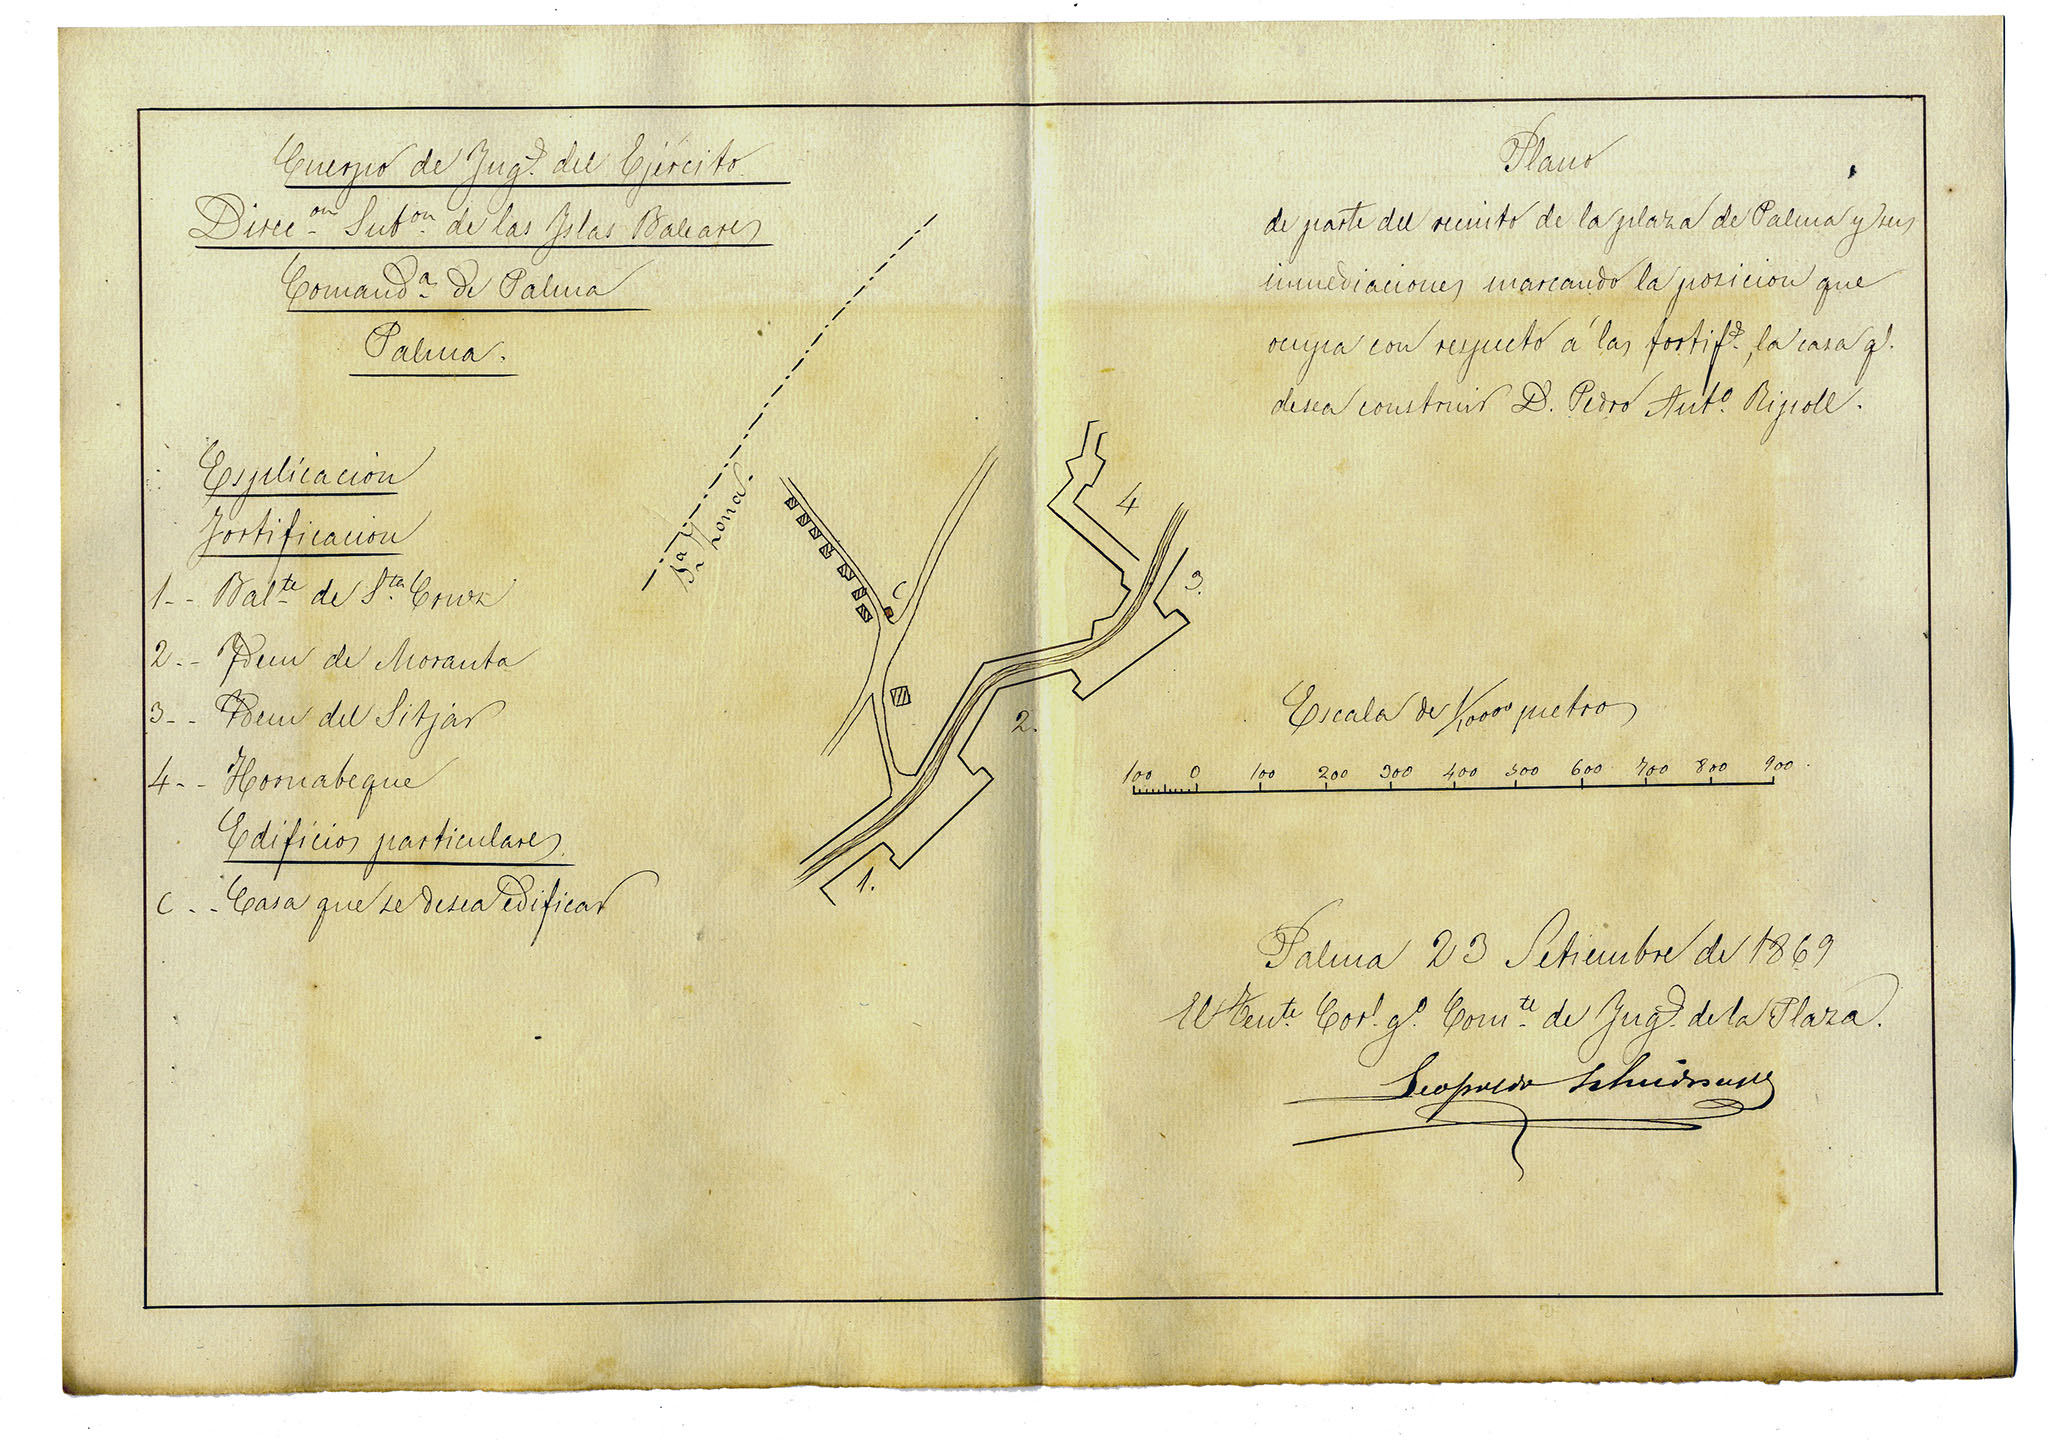 Cuerpo de Yng.s del Ejército
Direc.on Sub.on de las Yslas Baleares
Comand.a de Palma
Palma.
Esplicación
Fortificacion
1-- Bal.te de S.ta Cruz
2-- Ydem de Moranta
3-- Ydem del Sitjar
4-- Hornabeque
Edificios particulares
C-- Casa que se desea edificar
Plano
de parte del recinto de la plaza de Palma y sus
inmediaciones marcando la posicion que
ocupa con respecto á las fortif.s, la casa q.e
desea construir D. Pedro Ant.o Ripoll.
zona.
C
4
3.
2.
1.
Escala de 1/10000 metros
100 0 100 200 300 400 500 600 700 800 900
Palma 23 Setiembre de 1869
El Ten.te Cor.l g.o Com.te de Yng.s de la Plaza.
Leopoldo Scheidnagel